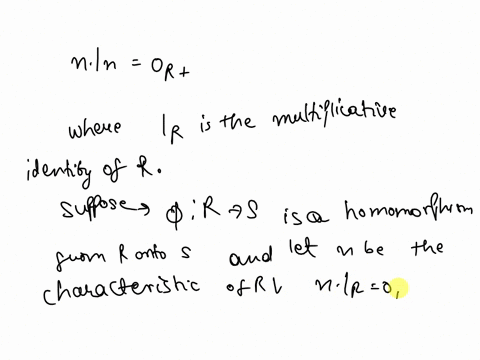 n.1n = 0R+
where 1R is the multiplicative
identity of R.
Suppose → ϕ : R → S is a homomorphism
from R onto S and let n be the
characteristic of R, n.1R = 0,